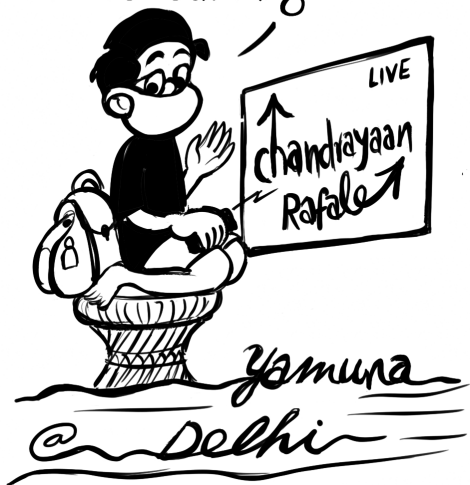 LIVE
chandrayaan
Rafale
Yamuna
@ Delhi